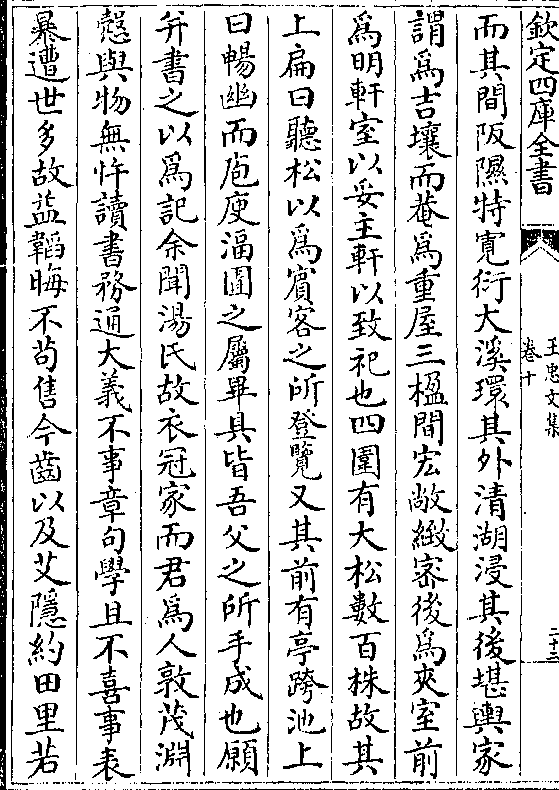 欽定四庫全書
王忠文集
卷十
二十三
而其間阪隰特寛衍大溪環其外清湖浸其後堪輿家
謂爲吉壤而菴爲重屋三楹間宏敞緻宻後爲夾室前
爲明軒室以妥主軒以致祀也四圍有大松數百株故其
上扁曰聽松以爲賓客之所登覽又其前有亭跨池上
曰暢幽而庖庾湢圊之屬畢具皆吾父之所手成也願
并書之以爲記余聞湯氏故衣冠家而君爲人敦茂淵
慤與物無忤讀書務通大義不事章句學且不喜事表
暴遭世多故益韜晦不茍售今齒以及艾隱約田里若